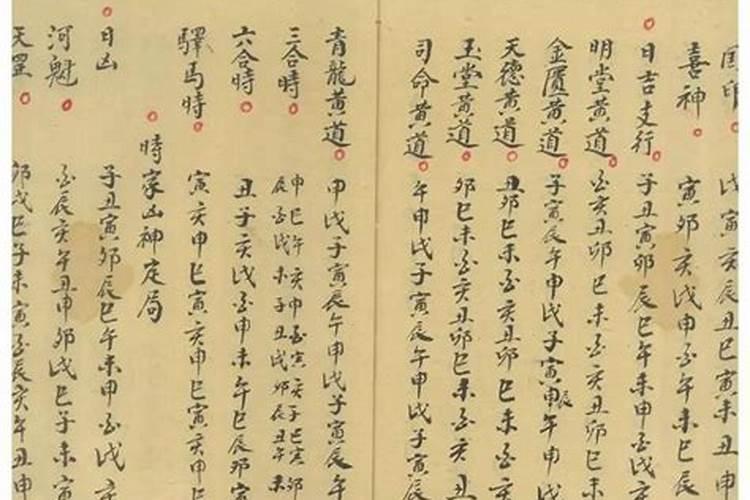 国印 戊寅亥辰丑巳寅未丑
喜神 寅卯亥戌申酉午未巳辰
日吉支行 子丑寅卯辰巳午未申酉戌亥
明堂黄道 酉亥丑卯巳未酉亥丑卯巳
金匱黄道 子寅辰午申戌子寅申辰午申
天德黄道 丑卯巳未酉亥丑卯巳未酉
玉堂黄道 卯巳未酉亥丑卯巳未酉亥丑
司命黄道 午申戌子寅辰午申戌子寅辰
青龍黄道 申戌子寅辰午申戌子寅辰午
三合時 申巳午亥申酉寅亥子巳寅卯
辰酉戌未子丑戌卯辰丑午未
六合時 丑子亥戌酉申未午巳辰卯寅
驛馬時 寅亥申巳寅亥申巳寅亥申巳
時家凶神定局
日凶 子丑寅卯辰巳午未申酉戌亥
河魁 酉辰亥午丑申卯戌巳子未寅
天罡 卯戌巳子未寅酉辰亥午丑申